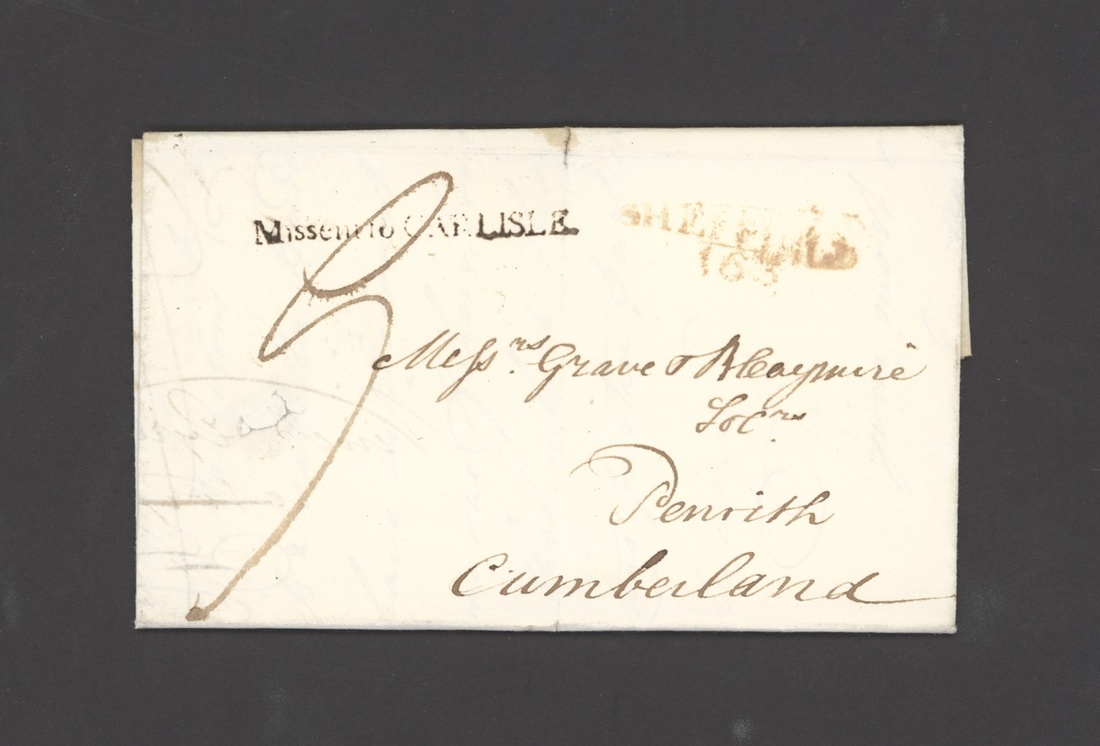 Missent to CARLISLE.
SHEFFIELD
163
9
Messrs. Grave &
Socrs
Penrith
Cumberland